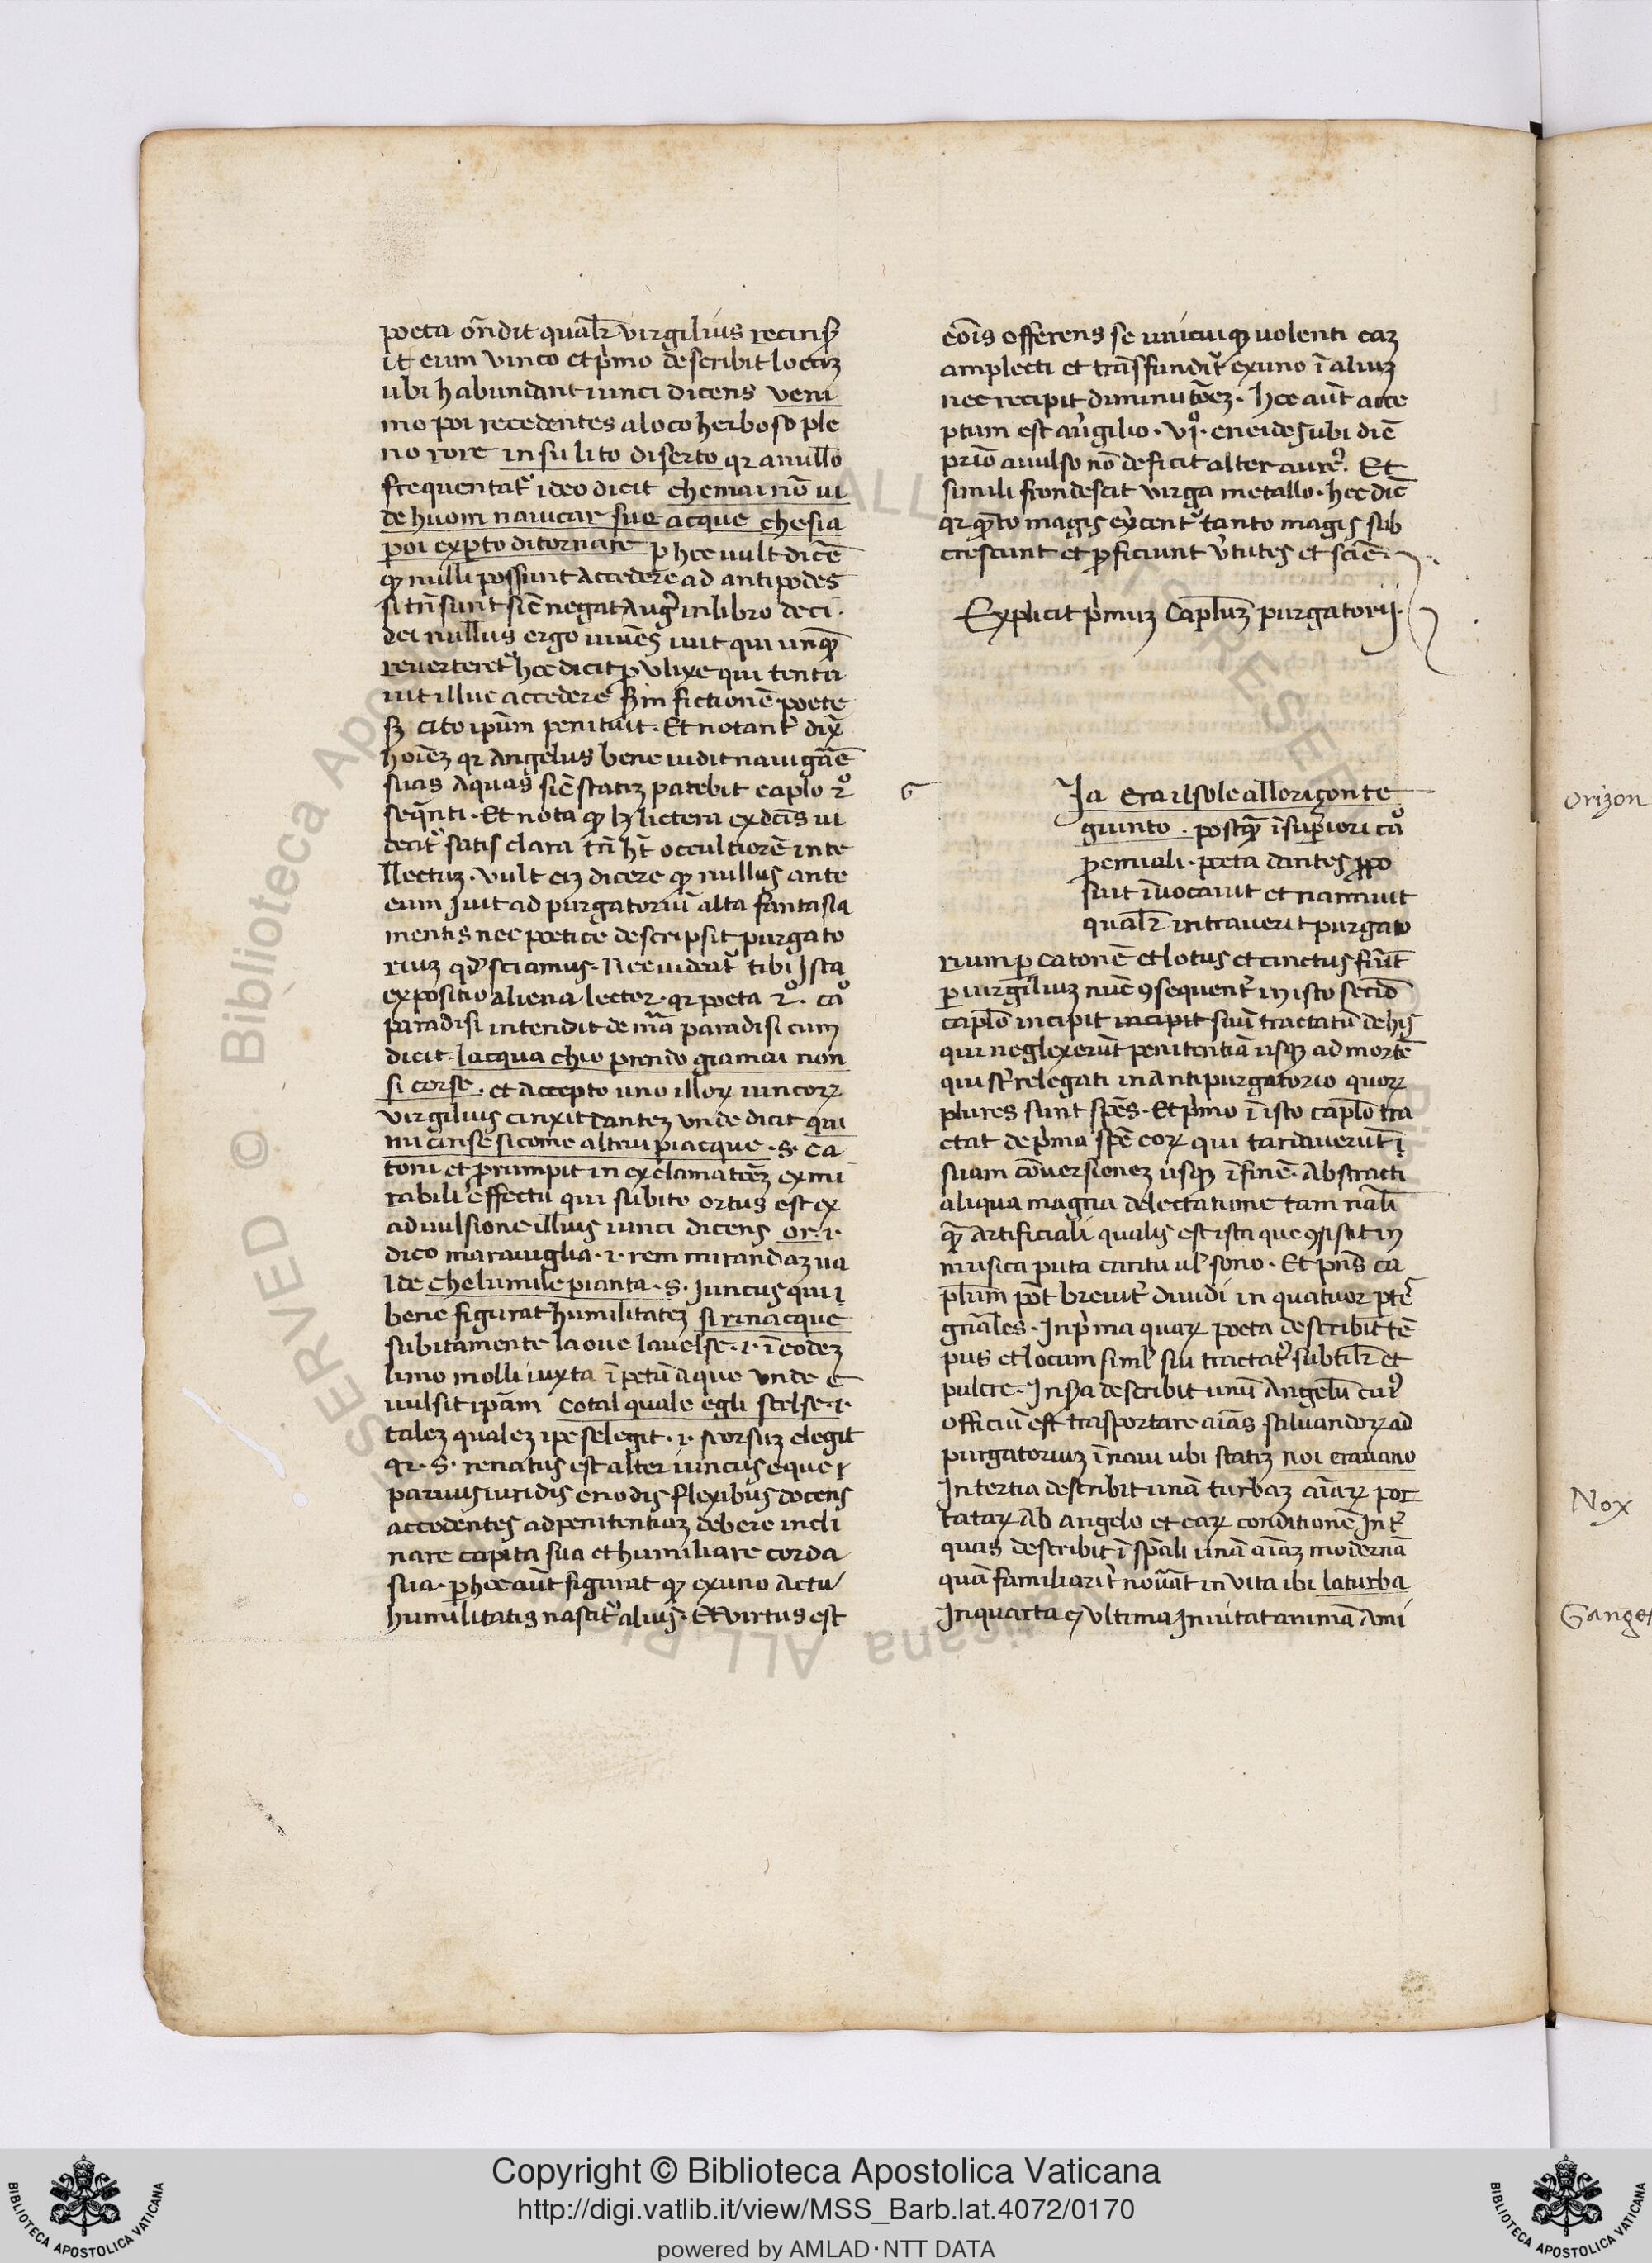 poeta oñdit qualr virgilius recinx
it eum vinco et pͥmo describit locuʒ
ubi habundant iunci dicens veni
mo poi recedentes a loco herboso ple
no rore in su lito diserto qr a nullo
frequentatᷣ ideo dicit che mai nō ui
de huom nauicar sue acque che sia
poi experto di tornare ꝑ hec uult dicē
ꝙ nulli possunt accedere ad antipodes
si tn̄ sunt sic̄ negat Augꝰ in libro de ci.
dei nullus ergo uiuēs iuit qui unqꝫ
reuerteretᷣ hec dicit ꝓ Vlixe qui tenta
uit illuc accedere ẜm fictionē poete
sʒ cito ipūm penituit. Et notantᷣ dix̄
hoīeʒ qr Angelus bene uidit nauigār̄
suas aquas sic̄ statiʒ patebit caplo 2º
seqn̄ti. Et nota ꝙ lʒ lictera ex dc̄is ui
deatᷣ satis clara tn̄ hʒ occultiorē inte
llectuʒ. vult eīʒ dicere ꝙ nullus ante
eum iuit ad purgatoriū alta fantasia
mentis nec poetice descripsit purgato
riuʒ qd̓ sciamus. Nec uideatᷣ tibi Ista
expositio aliena lector. qr poeta 2º. cº
paradisi intendit de mā paradisi cum
dicit. lacqua chio prendo giamai non
si corse. et accepto uno illoꝝ iuncoꝝ
virgilius cinxit Dantez vnde dicit qui
mi cinse si come altrui piacque .S. Ca
toni et prumpit in exclamatōēʒ ex mi
rabili effectu qui subito ortus est ex
aduulsione illius iunci dicens or. i.
dico marauiglia .i. rem mirandaʒ ua
lde che lumile pianta .S. iuncus qui
bene figurat humilitateʒ si rinacque
subitamente la oue lauelse .i. ī eodeʒ
limo molli iuxta īpetū aque vnde e
uulsit ipām cotal quale egli scelse .i.
taleʒ qualeʒ ipse elegit .i. seorsuʒ elegit
qr .S. renatus est alter iuncus eque
paruus uiridis enodis flexibus docens
accedentes ad penitentiaʒ debere incli
nare capita sua et humiliare corda
sua. ꝑ hec aūt figurat ꝙ ex uno actu
humilitatis nascitᷣ alius. Et virtus est
cōis offerens se unicuiqꝫ uolenti eaʒ
amplecti et trāsfunditᷣ ex uno ī aliuʒ
nec recipit diminutōeʒ. hec aūt acce
ptum est a virgilio. vjº. eneidos ubi dic̄
primo auulso nō deficit alter aureꝰ. Et
simili frondescit virga metallo. hec dic̄
qr quāto magis exrcentᷣ tanto magis sub
crescunt et proficiunt v̓tutes et scie.
Explicit pͥmuʒ Capluʒ purgatorij.
G
Ia era il sole allorizonte
giunto. postqꝫ ī superiori cº
proemiali. poeta dantes ꝓpo
suit īuocauit et narrauit
qualr intrauerit purgato
rium ꝑ catonē et lotus et cinctus fuit
ꝑ uirgiliuʒ nūc ꝯsequentᷣ in isto secūdo
caplo incipit incipit suū tractatū de his
qui neglexerūt penitentiā usqꝫ ad mortē
qui sūt relegati in Antipurgatorio quoꝝ
plures sunt spēs. Et pͥmo ī isto caplo tra
ctat de pͥma spē eoꝝ qui tardauerūt ī
suam cōuersioneʒ usqꝫ ī finē. Abstracti
aliqua magna delectatione tam nāli
qꝫ artificiali qualis est ista que ꝯsistit in
musica puta cantu ul̓ sono. Et pn̄s ca
plum pōt breuitᷣ diuidi in quatuor ptes
gn̄ales. In pͥma quaꝝ poeta describit tē
pus et locum siml̓ sui tractatᷣ subtilr et
pulcre. In scda describit unū Angelū cuiꝰ
officiū est trasportare aīas saluandoꝝ ad
purgatoriuʒ ī naui ubi statiʒ noi erauano
In tertia describit unā turbaʒ aīaꝝ por
tataꝝ ab angelo et eaꝝ conditionē Intᷣ
quas describit ī spāli unā aīaʒ modernā
quā familiaritᷣ nouāt in vita ibi la turba
In quarta et vltima Inuitat animā Ami
Orizon
Nox
Ganges
Copyright © Biblioteca Apostolica Vaticana
http://digi.vatlib.it/view/MSS_Barb.lat.4072/0170
powered by AMLAD·NTT DATA